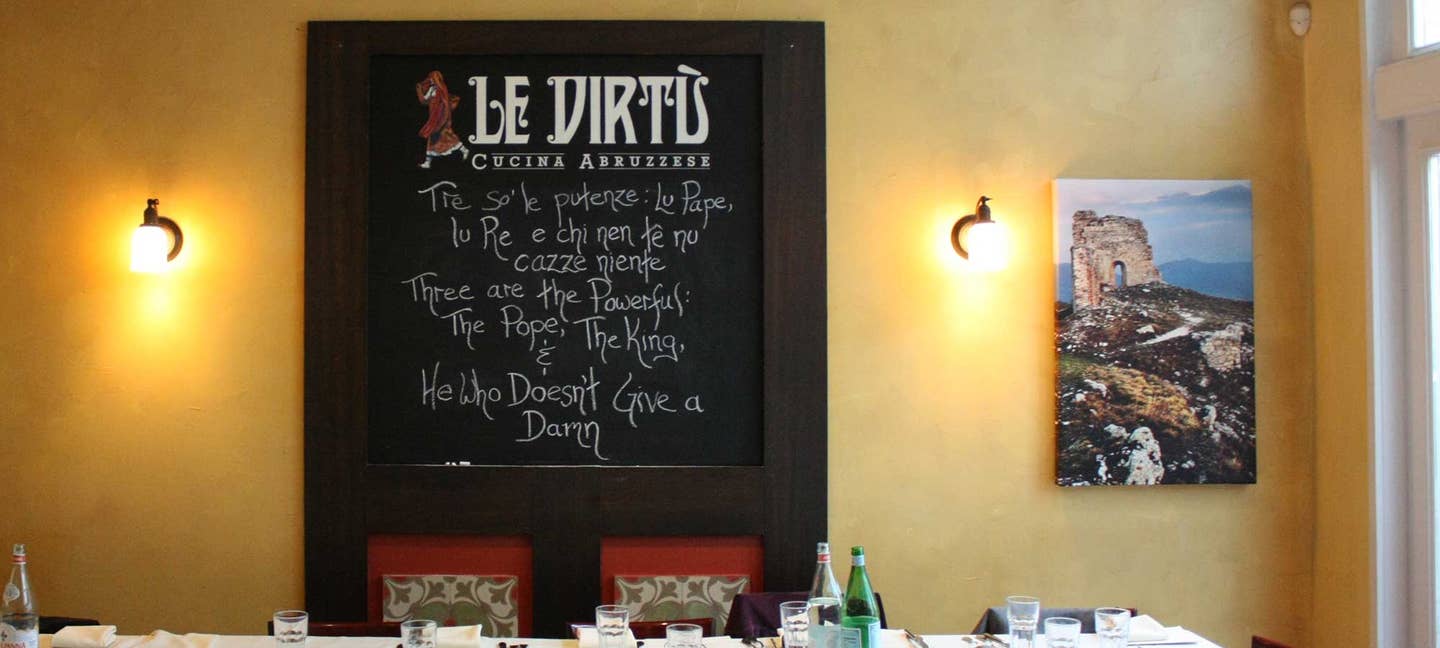 LE VIRTÙ
CUCINA ABRUZZESE
Trè so' le putenze: Lu Pape,
lu Re e chi nen tê nu
cazze niente
Three are the Powerful:
The Pope, The King,
&
He Who Doesn't Give a
Damn